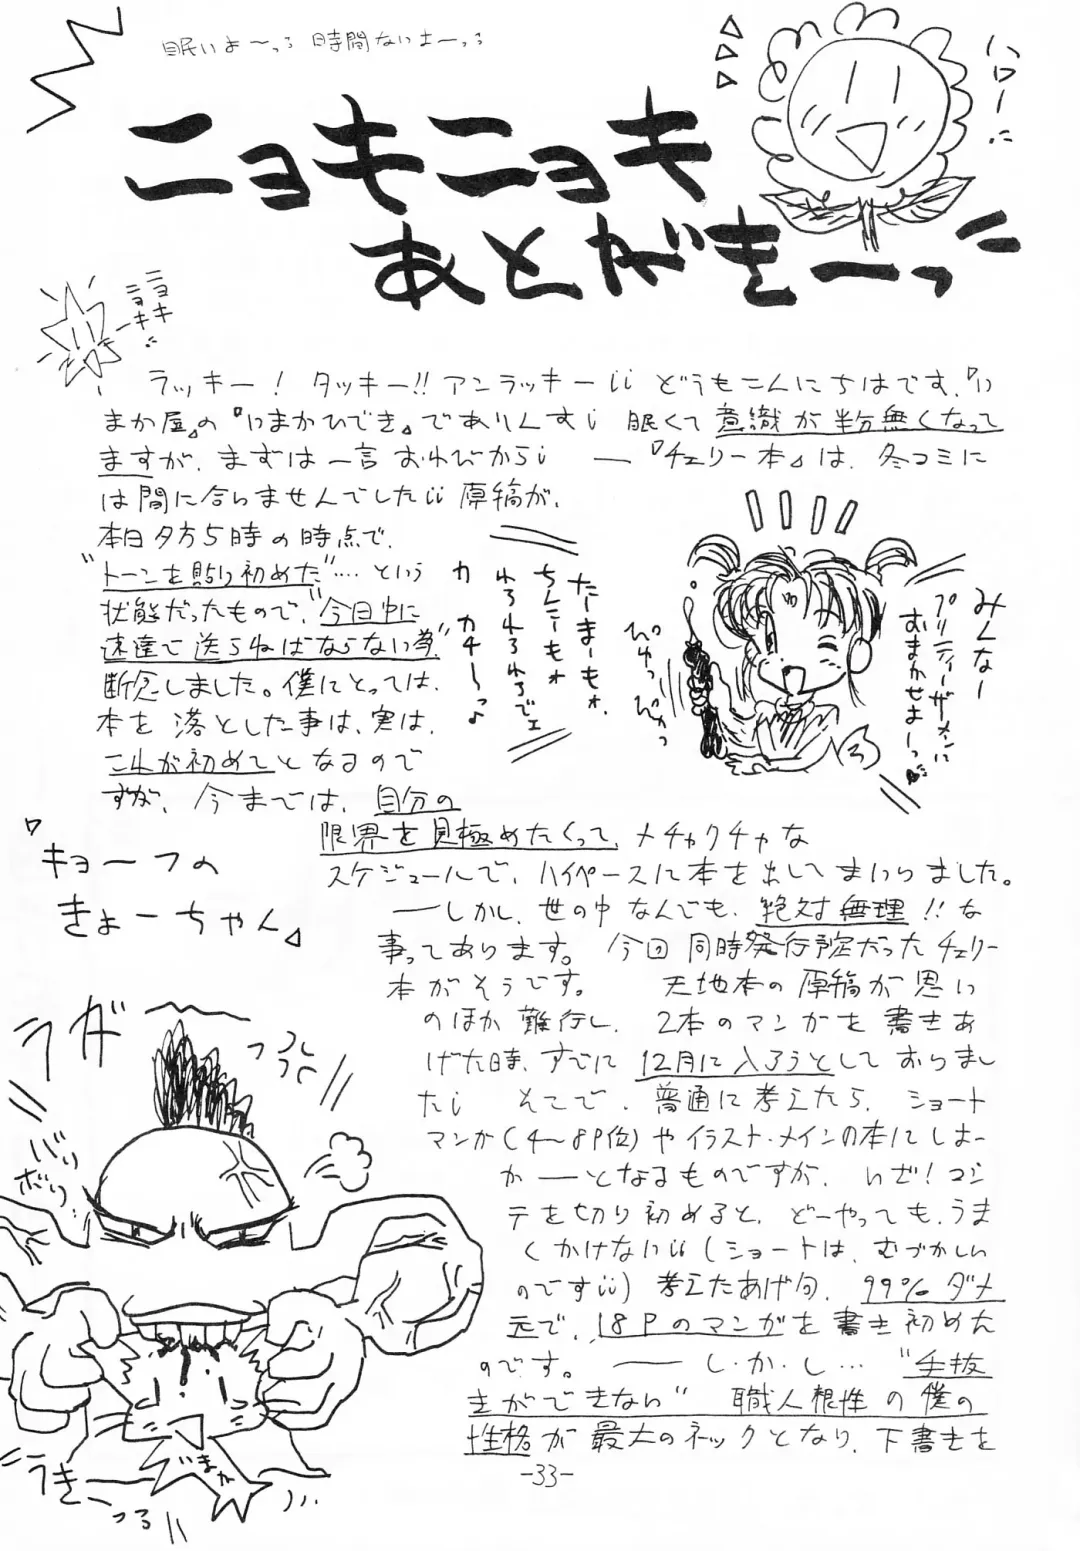 眠いよ〜っ 時間ないよーっ
ハロー
ニョキニョキ
あとがきーっ
ニョキ
ニョキーキ
ラッキー! タッキー!! アンラッキーii どうもこんにちはです。『い
まか屋』の『いまかひでき』でありんすi 眠くて意識が半分無くなって
ますが、まずは一言おわびからi ―『チェリー本』は、冬コミに
は間に合いませんでしたii 原稿が、
本日夕方5時の時点で、
"トーンを貼り初めた"…という
状態だったもので、"今日中に
速達で送らねばならない為"
断念しました。僕にとっては、
本を落とした事は、実は、
これが初めてとなるので
すが、今までは、自分の
限界を見極めたくって、メチャクチャな
スケジュールで、ハイペースに本を出してまいりました。
―しかし、世の中なんでも、絶対無理!!な
事ってあります。今回同時発行予定だったチェリー
本がそうです。 天地本の原稿が思い
のほか難行し、2本のマンガを書きあ
げた時、すでに12月に入ろうとしておりまし
たi そこで、普通に考えたら、ショート
マンガ(4〜8P位)やイラスト・メインの本にしよー
か――となるものですが、いぜ!コン
テを切り初めると、どーやっても、うま
くかけないii(ショートは、むづかしい
のですii)考えたあげ句、99%ダメ
元で、18Pのマンガを書き初めた
のです。――し・か・し…"手抜
きができない"職人根性の僕の
性格が最大のネックとなり、下書きを
みんなー
プリティーザーメンに
おまかせよーっ
ぴゅっ
ぴゅっ
たーまーもォ、
ちんこーもォ
われわれわれでェ
カ カチ〜っ♪
『キョーフの
きょーちゃん』
ウガーっ
バリ
ボリ
いまか
うきーっ
-33-